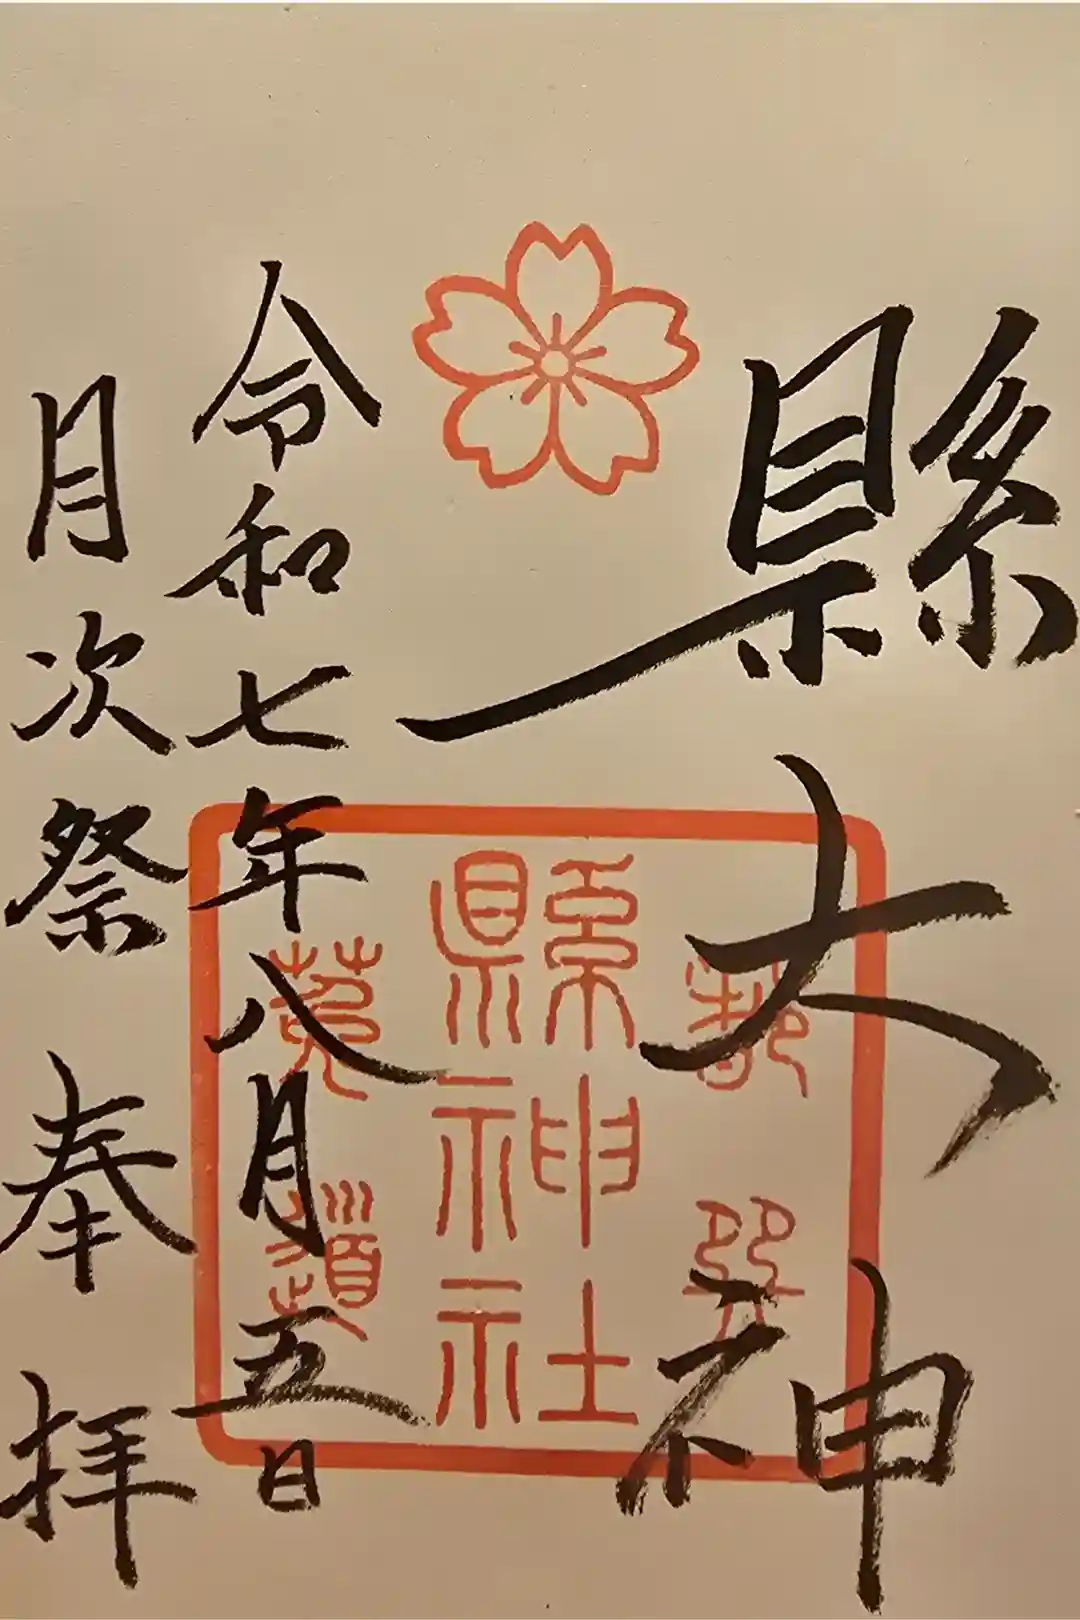 縣大神
都巽
縣神社
菟道
令和七年八月五日
月次祭 奉拝